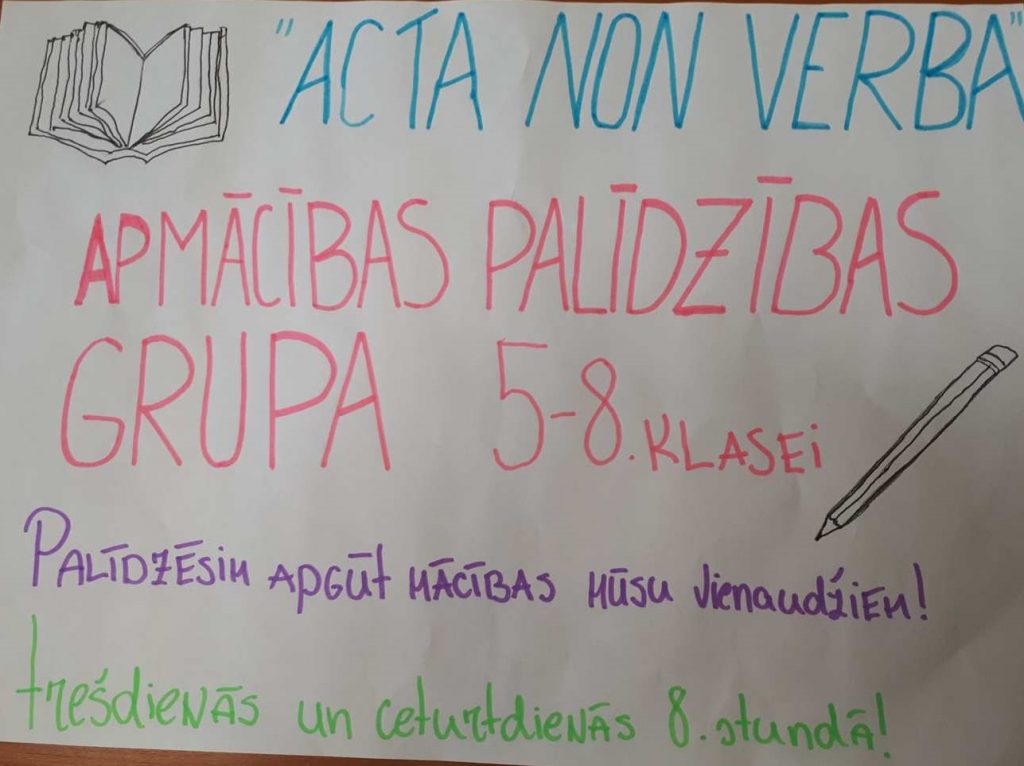 "ACTA NON VERBA"
APMĀCĪBAS PALĪDZĪBAS
GRUPA 5-8. KLASEi
PALĪDZĒSiM APGŪt MĀCĪBAS MŪSu vienaudžiEM!
trešdieNĀs un ceturtdieNĀs 8. stundā!